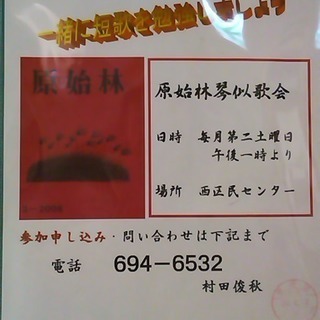 一緒に短歌を勉強しましょう
原始林
原始林琴似歌会
日時 毎月第二土曜日
午後一時より
場所 西区民センター
参加申し込み・問い合わせは下記まで
電話 694-6532
村田俊秋